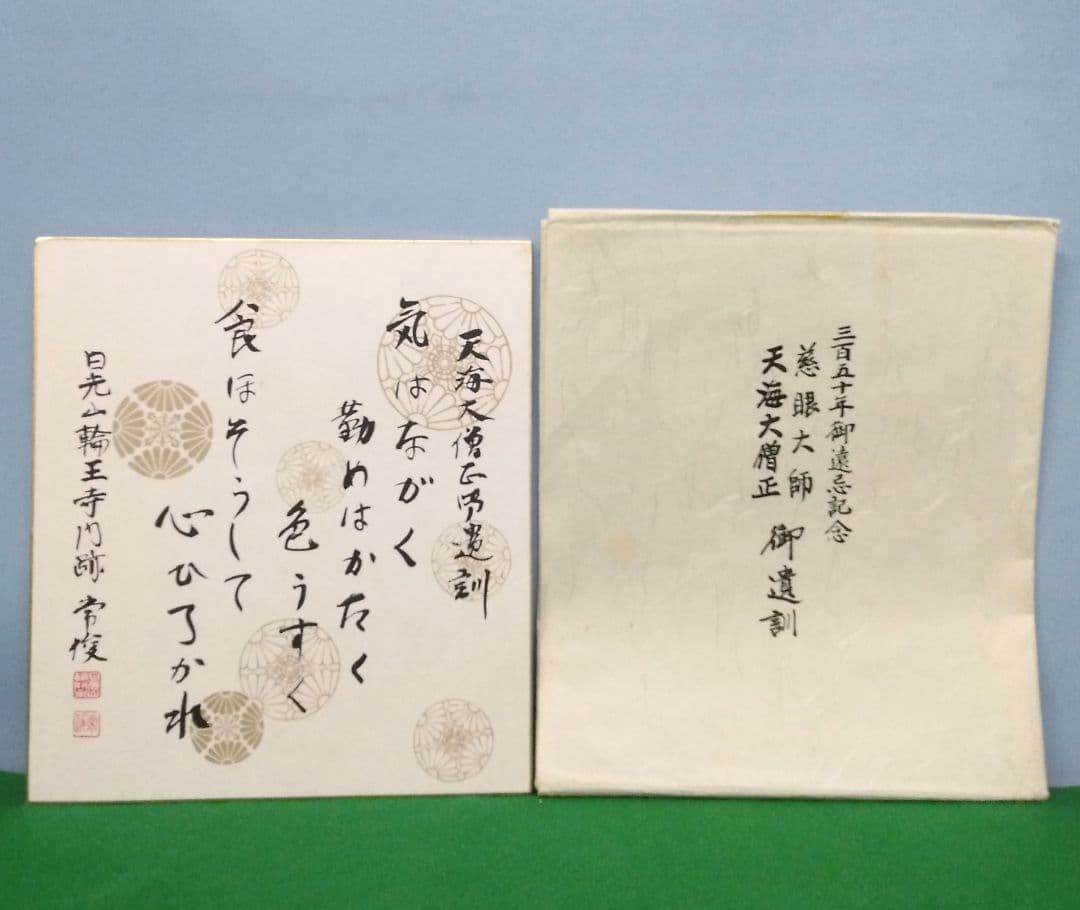 天海大僧正御遺訓
気はながく
勤めはかたく
色うすく
食ほそうして
心ひろかれ
日光山輪王寺門跡 常俊
三百五十年御遠忌記念
慈眼大師
天海大僧正 御遺訓